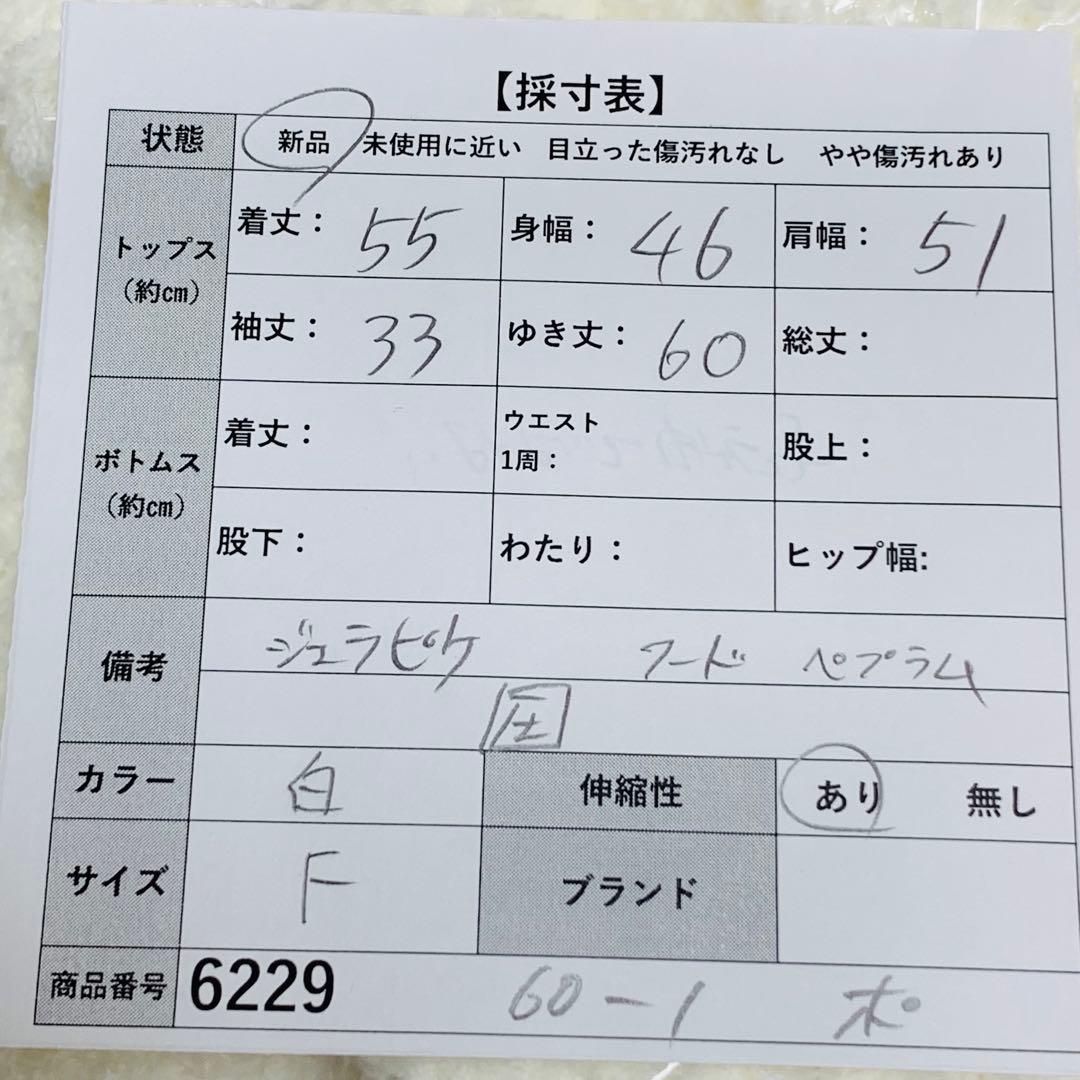 【採寸表】
状態 新品 未使用に近い 目立った傷汚れなし やや傷汚れあり
トップス（約㎝） 着丈： 55 身幅： 46 肩幅： 51
袖丈： 33 ゆき丈： 60 総丈：
ボトムス（約㎝） 着丈： ウエスト1周： 股上：
股下： わたり： ヒップ幅:
備考 ジェラピケ フード ペプラム
圧
カラー 白 伸縮性 あり 無し
サイズ F ブランド
商品番号 6229 60-1 ポ